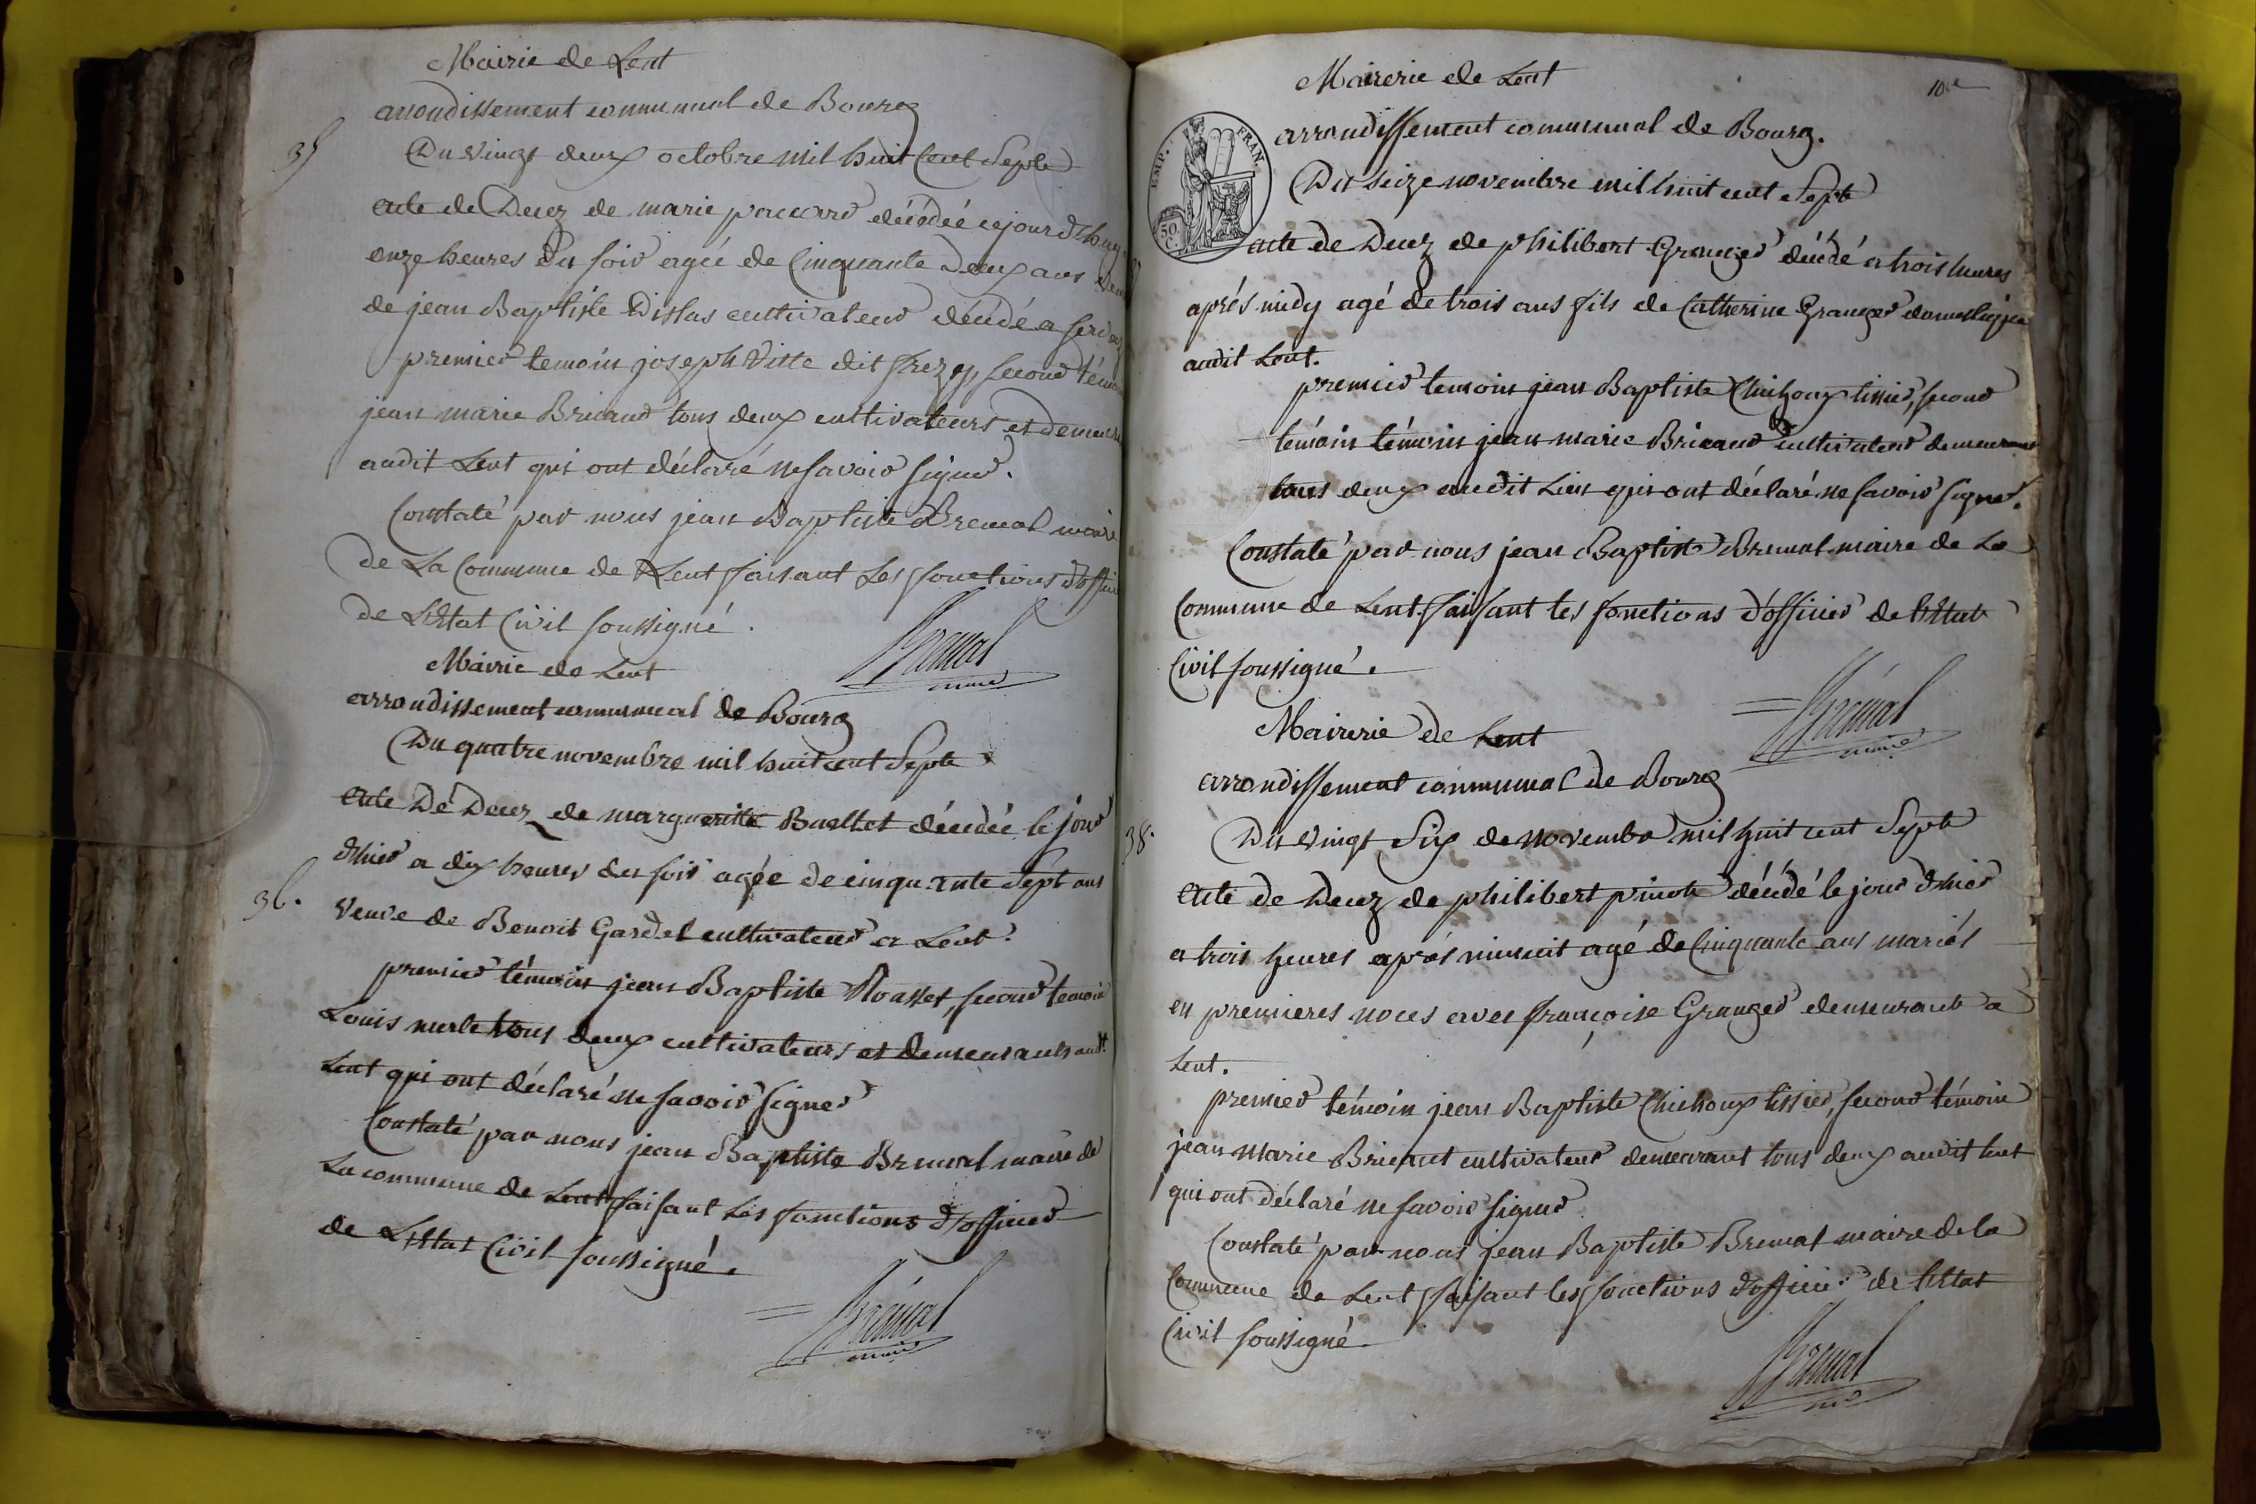 Mairie de Lent
arrondissement communal de Bourg
35
Du vingt deux octobre mil huit cent Sept
acte de Decez de marie paccard décédée cejourd'huy
onze heures du soir agée de Cinquante Deux ans
de jean Baptiste Dislas cultivateur décédé a
premier temoin joseph Vitte dit frezy, second
jean marie Bricaud tous deux cultivateurs et
audit Lent qui ont déclaré ne savoir signer.
Constaté par nous jean Baptiste Bremal maire
de La Commune de Lent faisant Les fonctions
de L'Etat Civil soussigné.
Bremal
maire
Mairie de Lent
arrondissement communal de Bourg
Du quatre novembre mil huit cent Sept
acte De Decez de margueritte Buellet décédée le jour
d'hier a dix heures du soir agée de cinquante Sept ans
36.
veuve de Benoit Gardel cultivateur a Lent.
premier témoin jean Baptiste Rousset, second temoin
Louis merle tous deux cultivateurs et demeurants audt
Lent qui ont déclaré ne savoir signer
Constaté par nous jean Baptiste Bremal maire de
La commune de Lent faisant Les fonctions d'officier
de L'Etat Civil soussigné.
Bremal
maire
Mairerie de Lent
EMP. FRAN.
50 C.
arrondissement communal de Bourg.
Du seize novembre mil huit cent Sept
acte de Decez de philibert Granger décédé a trois heures
aprés midy agé de trois ans fils de Catherine Granger domestique
audit Lent.
premier temoin jean Baptiste Chichoux tissier, second
témoin témoin jean marie Bricaud cultivateur demeurant
tous deux audit Lieu qui ont déclaré ne savoir signer.
Constaté par nous jean Baptiste Bremal maire de La
Commune de Lent faisant les fonctions d'officier de l'Etat
Civil soussigné.
Bremal
maire
Mairerie de Lent
arrondissement communal de Bourg
38.
Du vingt Six de novembre mil huit cent Sept
acte de Decez de philibert pinot décédé le jour d'hier
a trois heures aprés minuit agé de Cinquante ans mariés
en premieres noces avec françoise Granger demeurant a
Lent.
premier témoin jean Baptiste Chichoux tissier, second témoin
jean Marie Bricaut cultivateur demeurant tous deux audit Lent
qui ont déclaré ne savoir signer
Constaté par nous jean Baptiste Bremal maire de la
Commune de Lent faisant les fonctions d'officier de l'Etat
Civil soussigné
Bremal